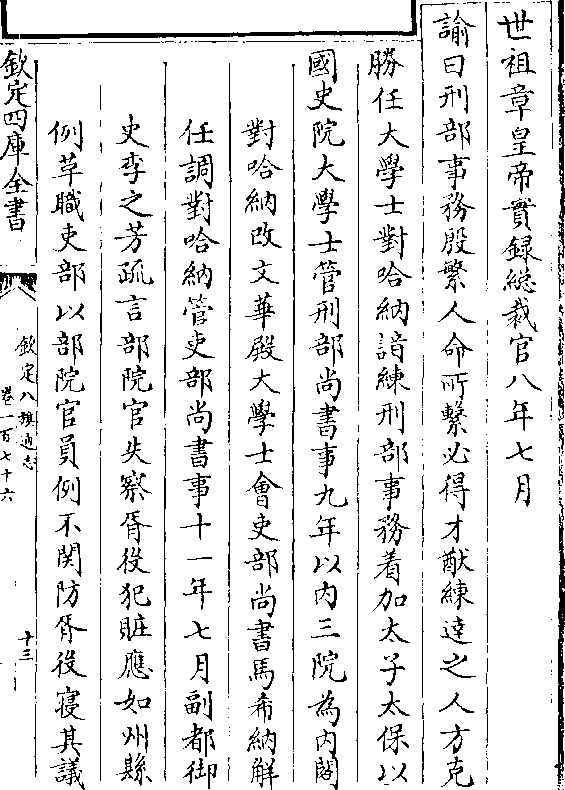 世祖章皇帝實録總裁官八年七月
諭曰刑部事務殷繁人命所繫必得才猷練達之人方克
勝任大學士對哈納諳練刑部事務着加太子太保以
國史院大學士管刑部尚書事九年以内三院為内閣
對哈納改文華殿大學士會吏部尚書馬希納解
任調對哈納管吏部尚書事十一年七月副都御
史李之芳疏言部院官失察胥役犯贓應如州縣
例革職吏部以部院官員例不関防胥役寝其議
欽定四庫全書
欽定八旗通志
卷一百七十六
十三